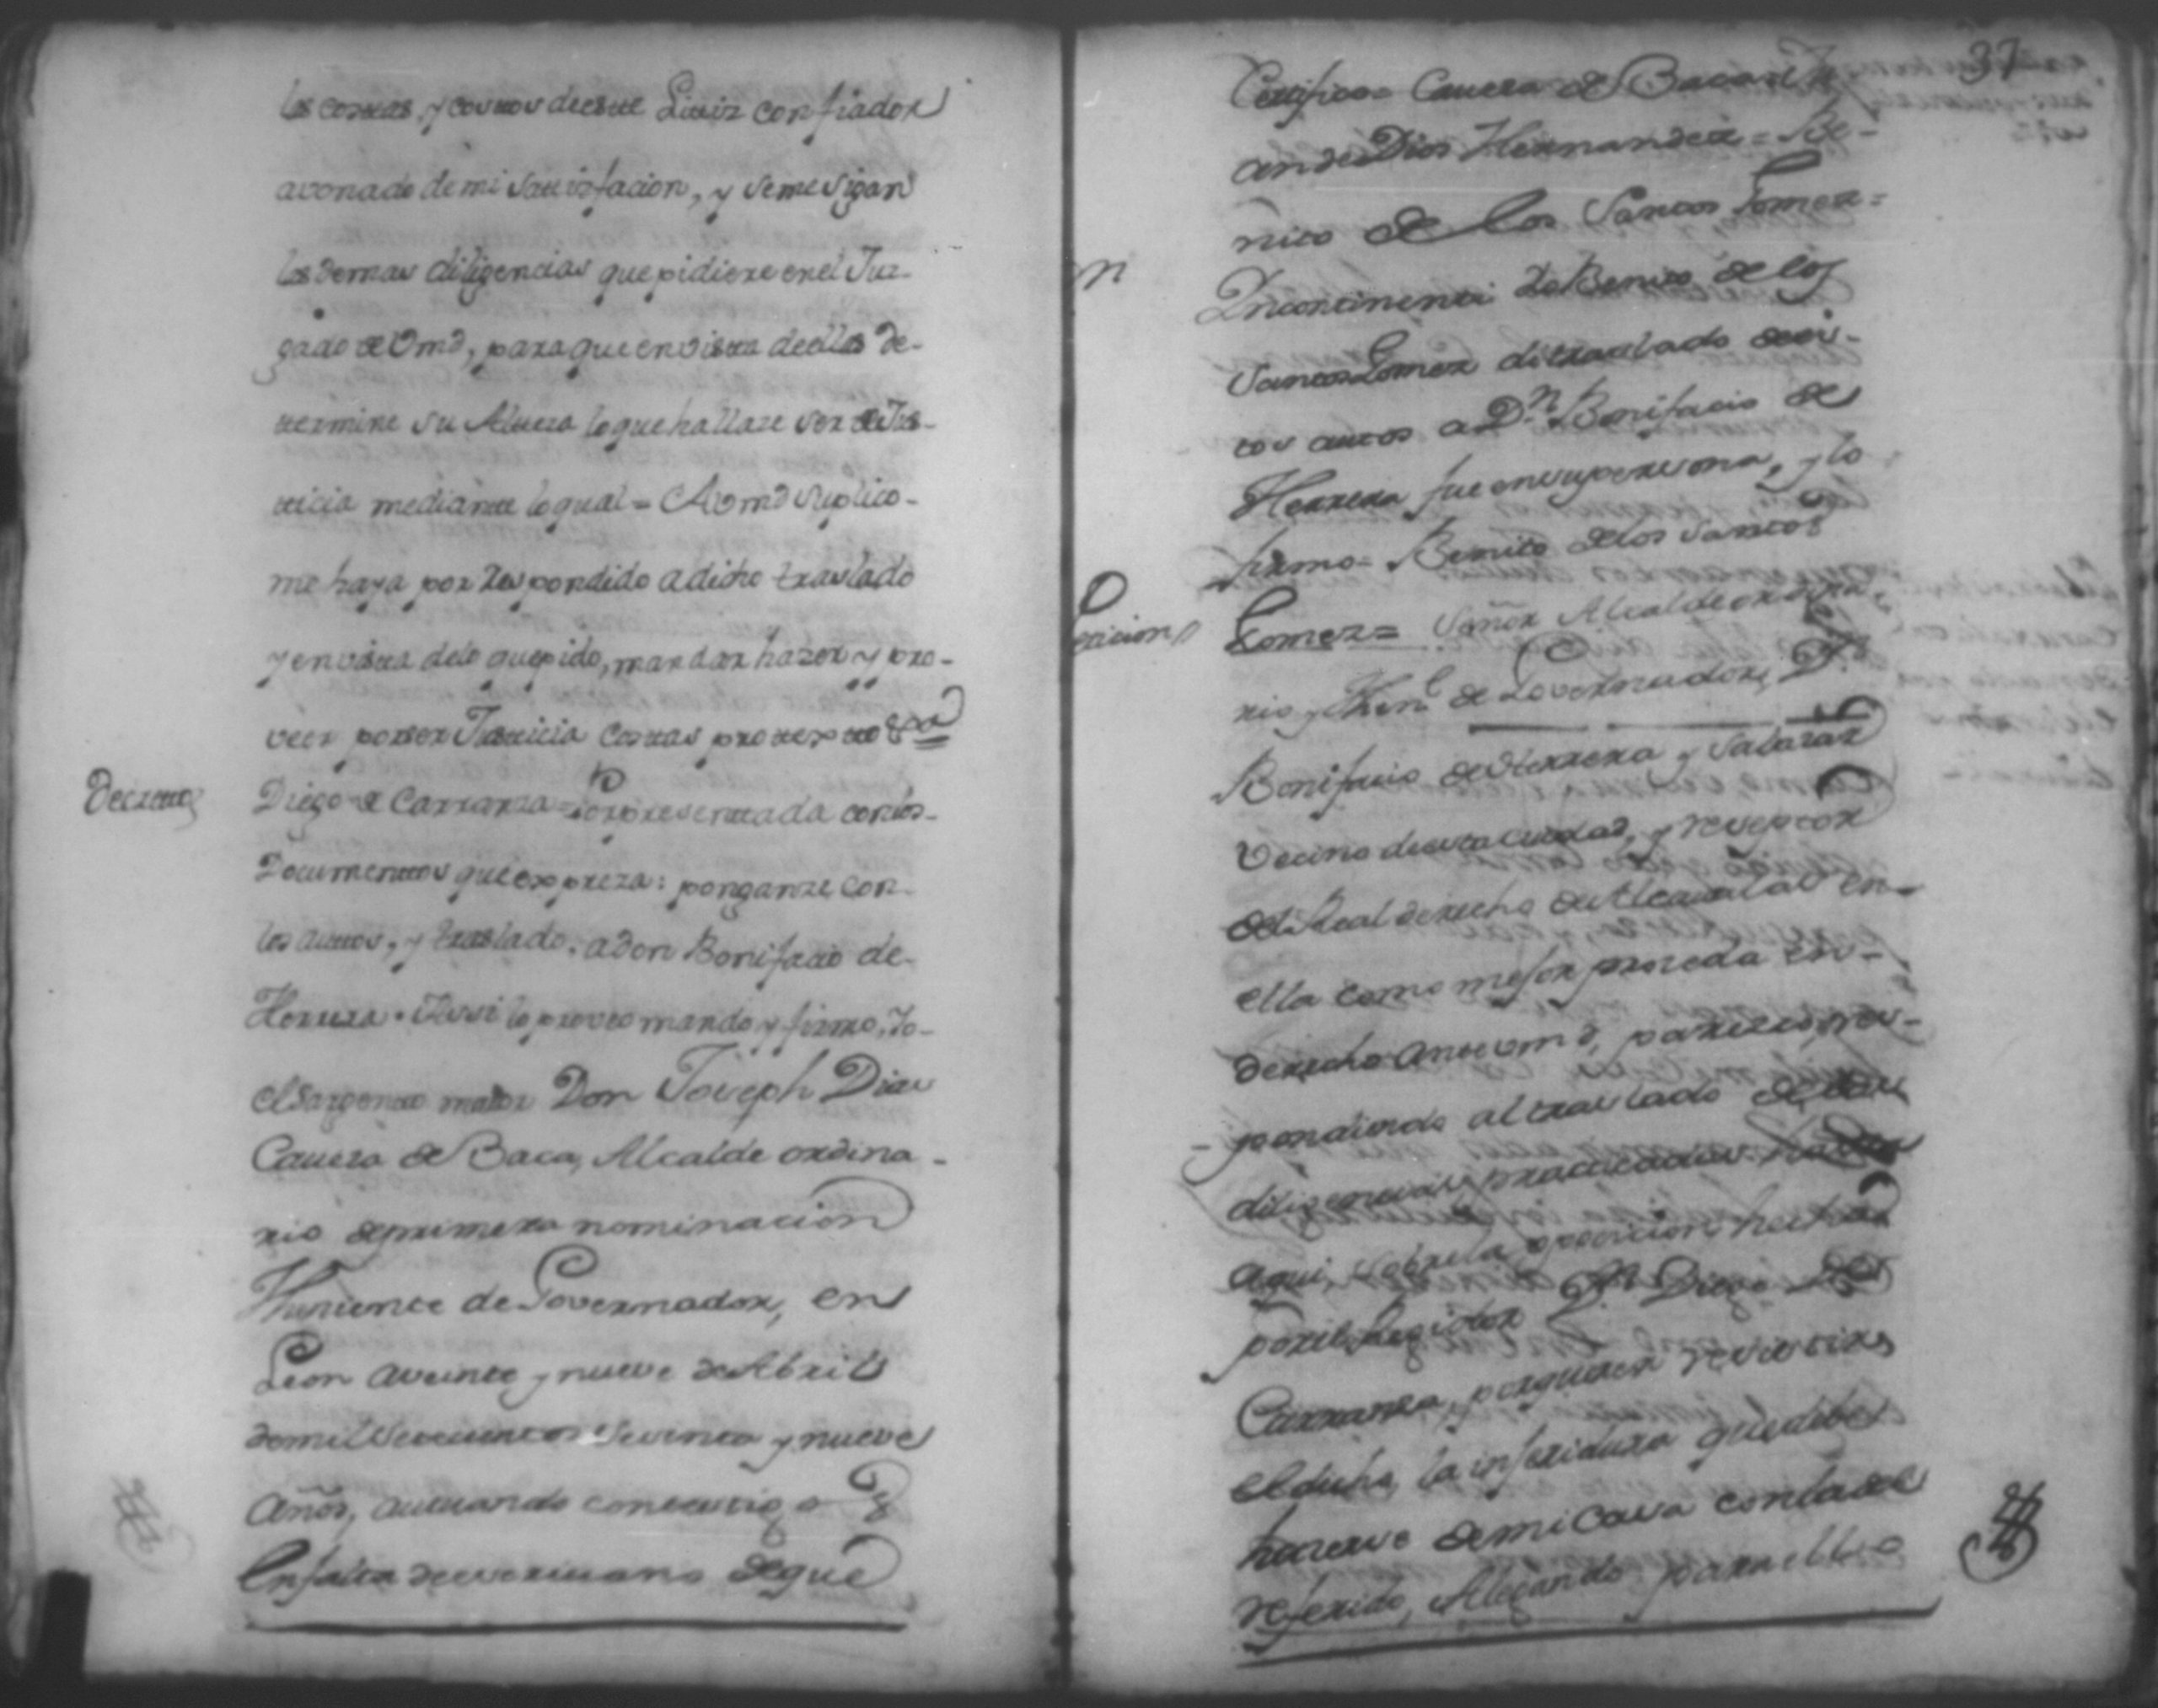 las costas, y costos de este Litiz con fiador
avonado de mi satisfacion, y se me sigan
las demas diligencias que pidiere en el Juz-
gado de Vmd, para que en vista de ellas de-
termine su Alteza lo que hallare ser de Jus-
ticia mediante lo qual = A Vmd suplico-
me haya por respondido a dicho traslado
y en vista de lo que pido, mandar hazer y pro-
veer por ser Justicia costas protexto &ra
Decreto
Diego de Carranza = Por presentada con los-
Documentos que expreza: ponganze con-
los autos, y traslado. a don Bonifacio de-
Herrera. Assi lo proveo mando y firmo, Yo-
el Sargento maior Don Joseph Diaz
Caveza de Baca, Alcalde ordina-
rio de primera nominacion
Theniente de Governador, en
Leon a veinte y nueve de Abril
de mil setecientos sesenta y nueve
años, actuando con testigos
en falta de escrivano de que
37
Certifico = Caveza de Baca =
an de Dios Hernandez = Be-
nito de los Santos Gomez =
n
Incontinenti Yo Benito de los
Santos Gomez di traslado de es-
tos autos a Dn Bonifacio de
Herrera fue en su persona, y lo
firmo = Benito de los Santos
eticion
Gomez = Señor Alcalde ordina-
rio y Thene de Governador, Dn
Bonifacio de Herrera y Salazar
Vecino de esta ciudad, y receptor
del Real derecho de Alcavalas en-
ella como mejor proceda en-
derecho ante vmd, parezco, res-
pondiendo al traslado de las
diligencias practicadas hasta
aqui, sobre la oposicion hecha
por el Regidor Dn Diego de
Carranza, por querer resistir
el dicho, la inferidura que debe
hacerse de mi Casa con la del
referido, Alegando para ello